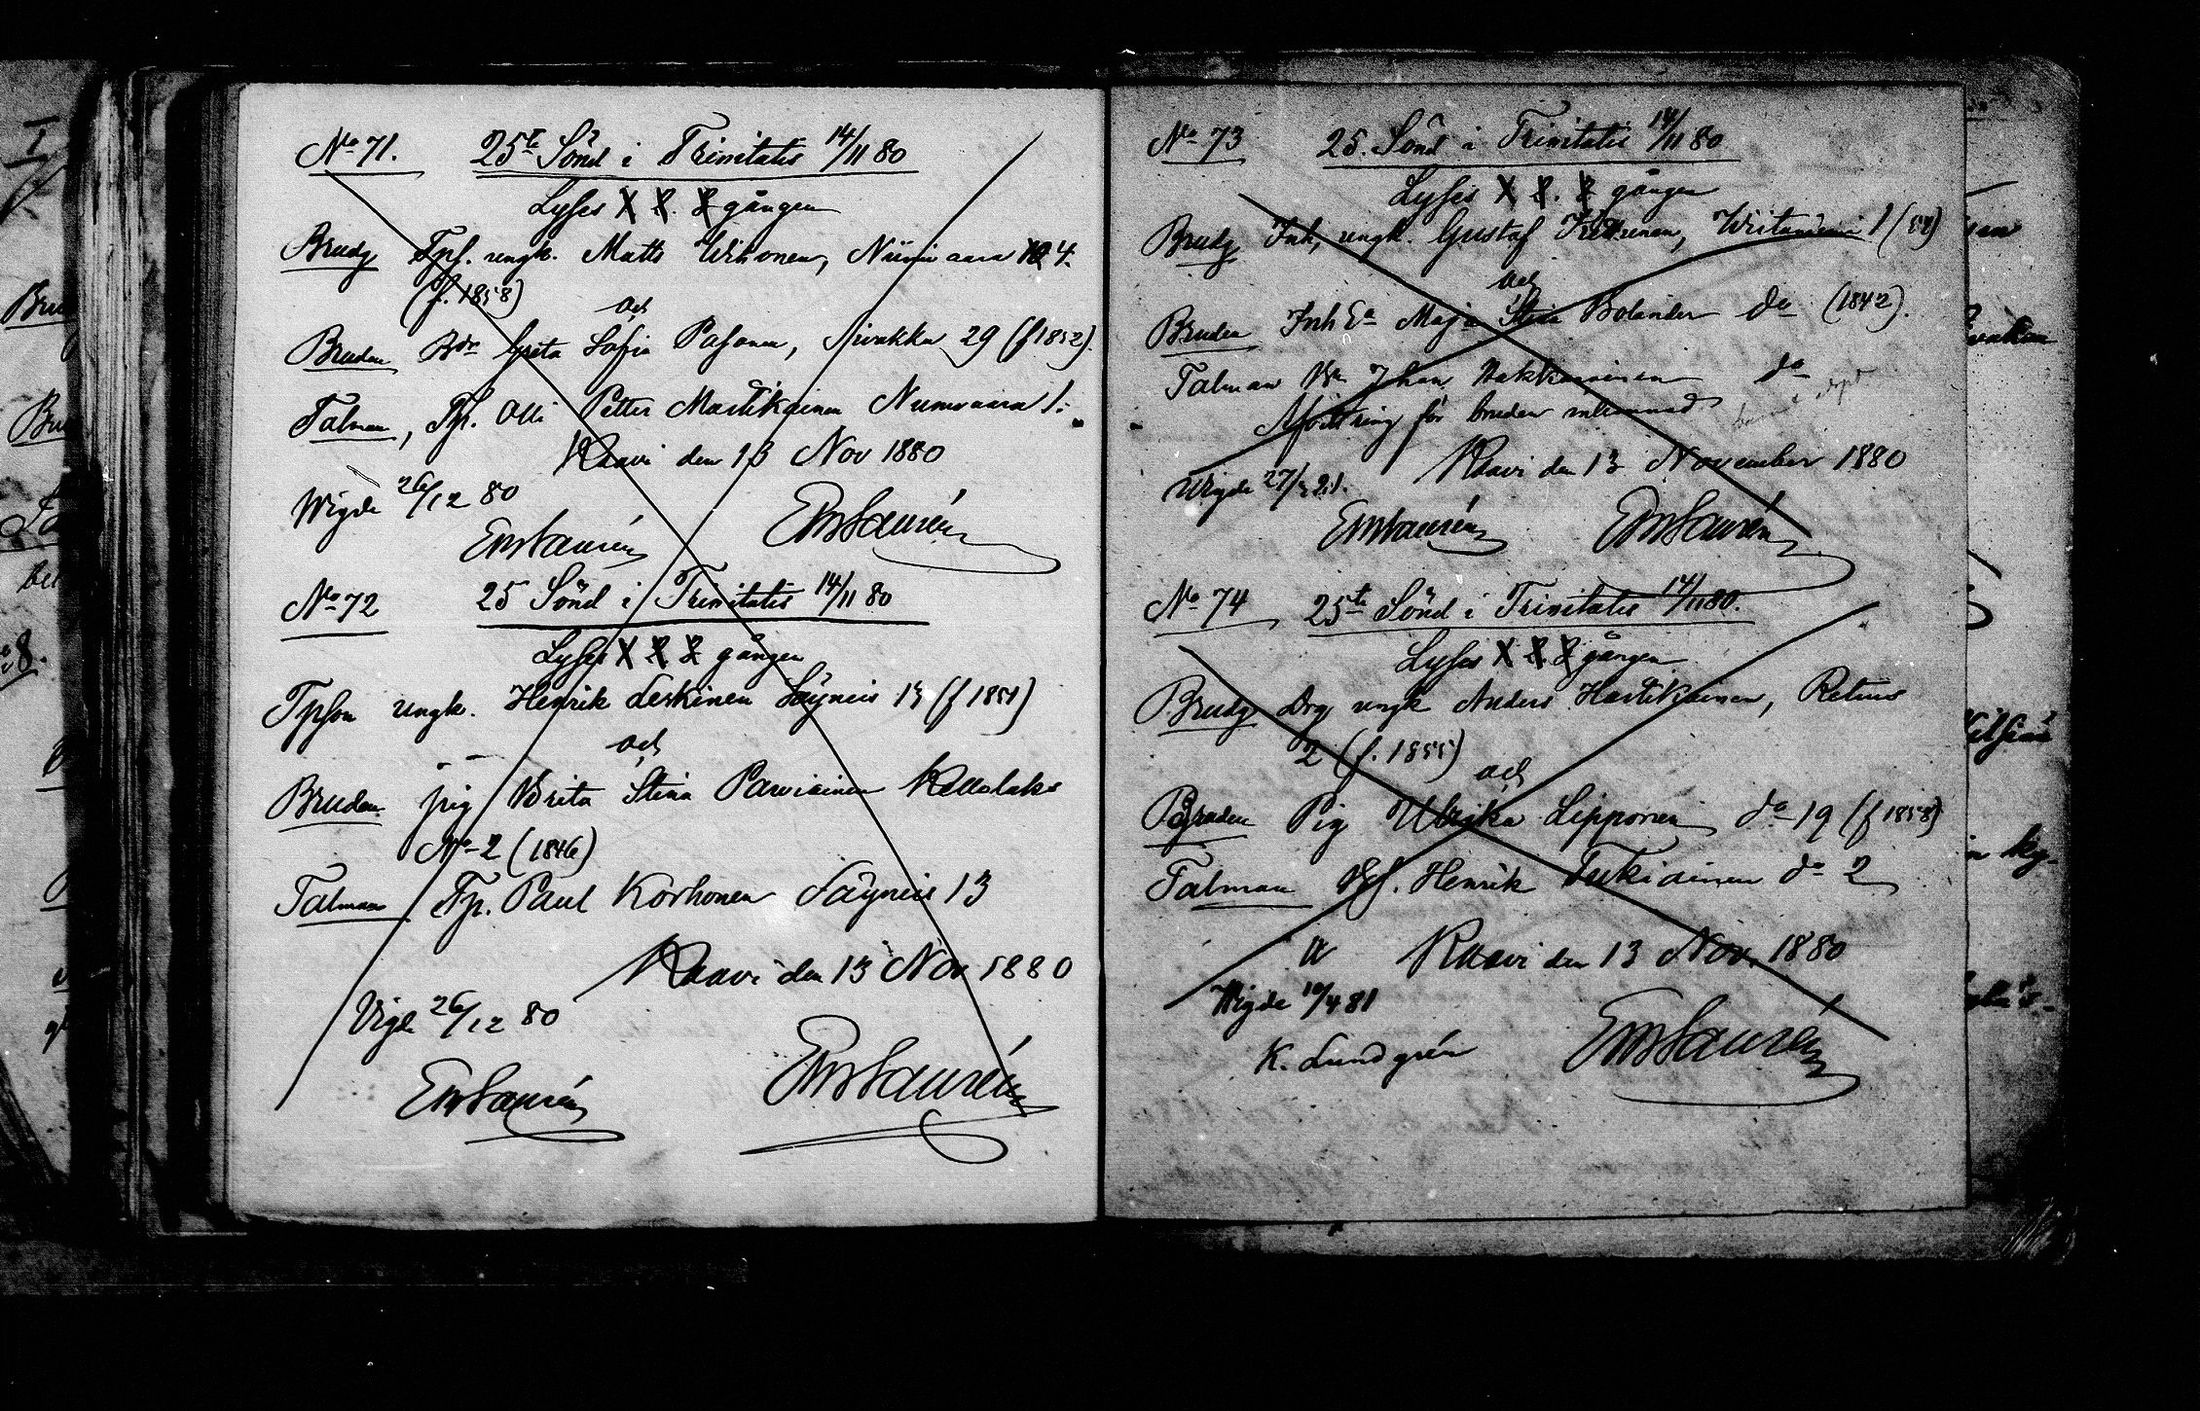 No 71. 25te Sönd i Trinitatis 14/11 80
Lyses X 2. 3 gången
Brudg Tpf. ungk. Matts Wihonen, Niini aara 4.
(f. 1858)
och
Bruden Greta Sofia Pasonen, Sivakka 29 (f 1852).
Talman, Tpf. Olli Petter Martikainen Numoaara 1.
Kaavi den 13 Nov 1880
Wigde 26/12 80
Em Saurén
Em Saurén
No 72 25 Sönd i Trinitatis 14/11 80
Lyses X 2 3 gången
Tpson ungk. Henrik Leskinen Säyneis 13 (f 1851)
och
Bruden pig Brita Stina Parviainen Kellolaks
No 2 (1846)
Talman Tp. Paul Korhonen Säyneis 13
Kaavi den 13 Nov 1880
Vigde 26/12 80
Em Saurén
Em Saurén
No 73 25. Sönd i Trinitatis 14/11 80
Lyses X 2. 3 gången
Brudg Inh, ungk. Gustaf 1
och
Bruden Inh Ea Maja Stina Bolander do (1842).
Talman Johan Hakkarainen do
för bruden inlemnad
Wigde 27/ Kaavi den 13 November 1880
Em Saurén
Em Saurén
No 74 25te Sönd i Trinitatis 14/11 80.
Lyses X 2. 3 gången
Brudg Drg ungk Anders Hartikainen, Retuns
2 (f. 1855)
och
Bruden Pig Ulrika Lipponen do 19 (f 1858)
Talman Henrik Tukiainen do 2
Kaavi den 13 Nov. 1880
Wigde 10/4 81
K. Lundgrén
Em Saurén